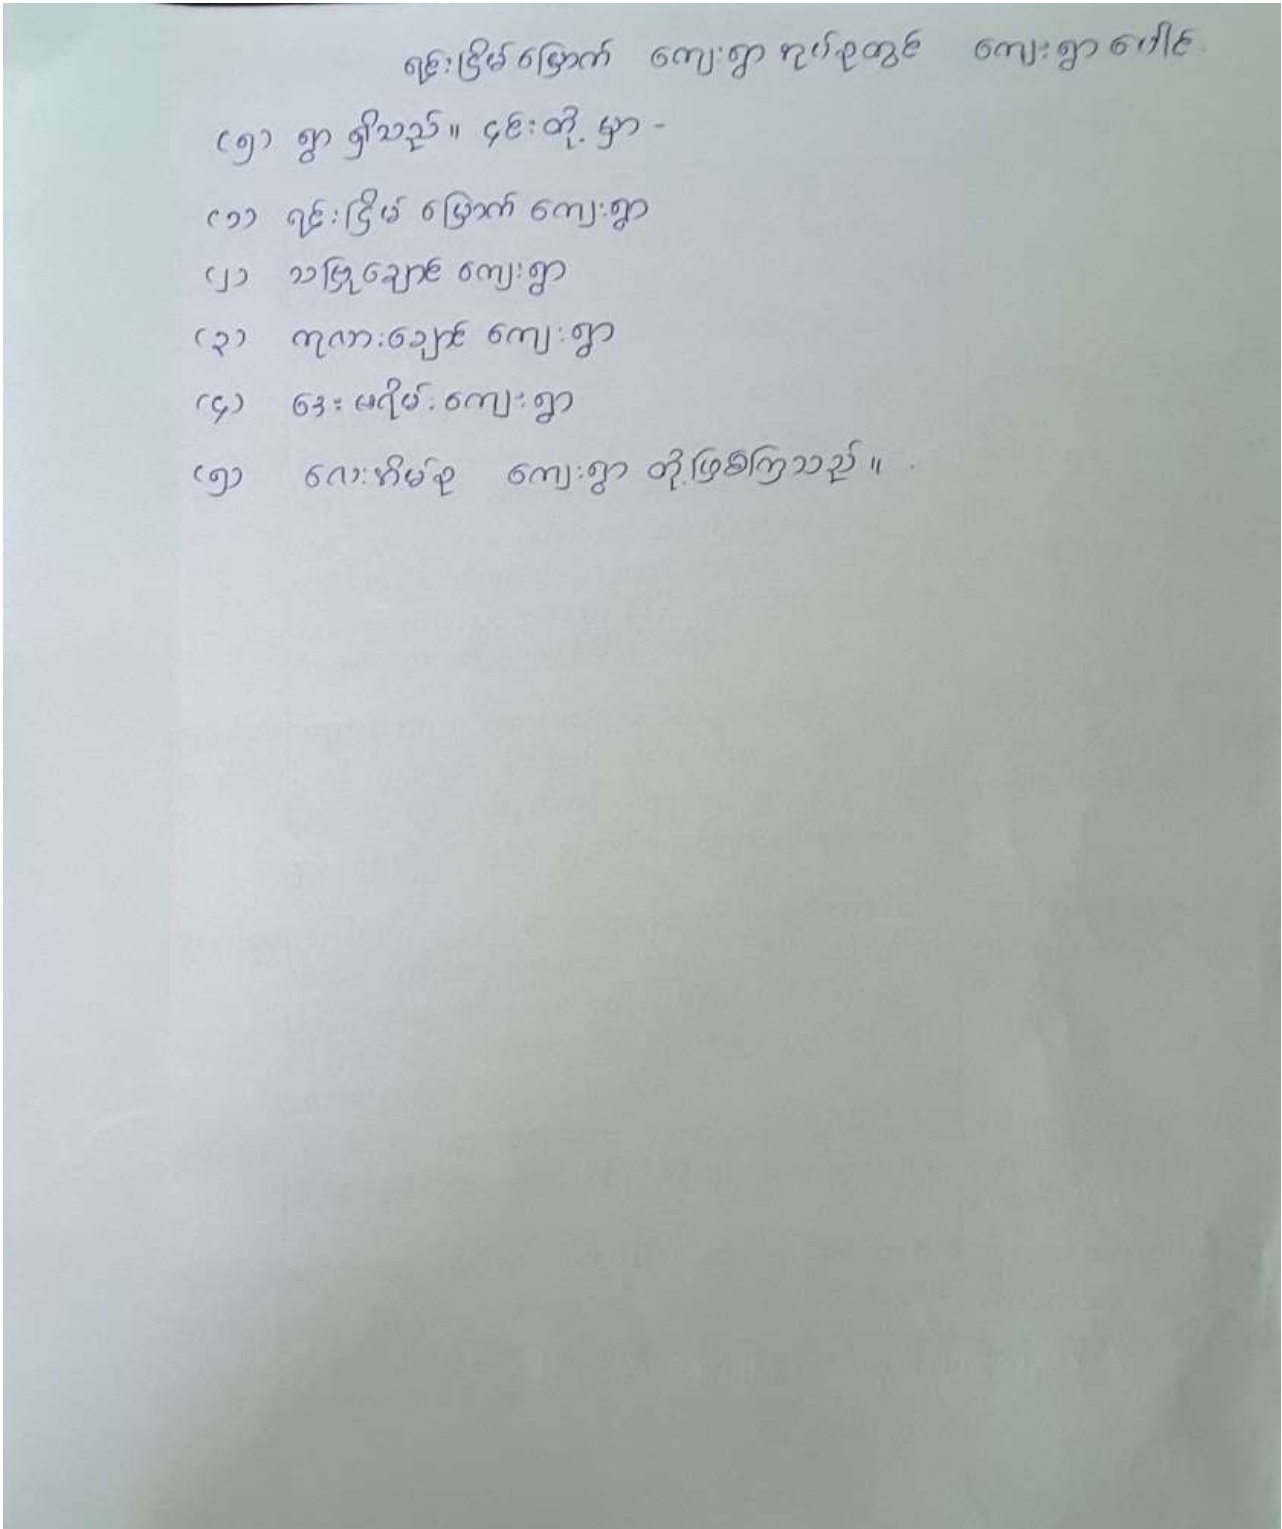 ရင်းငြိမ်မြောက် ကျေးရွာအုပ်စုတွင် ကျေးရွာပေါင်း
(၅) ရွာ ရှိသည်။ ၎င်းတို့မှာ -
(၁) ရင်းငြိမ်မြောက် ကျေးရွာ
(၂) သမြုချောင် ကျေးရွာ
(၃) ကုလားချောင် ကျေးရွာ
(၄) ဒေးမရိမ်း ကျေးရွာ
(၅) လေးအိမ်စု ကျေးရွာ တို့ဖြစ်ကြသည်။